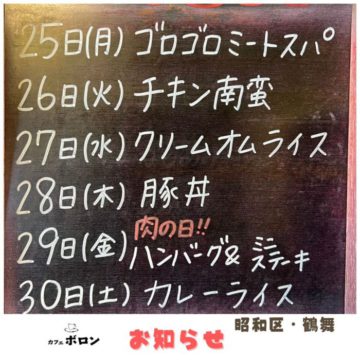 25日(月) ゴロゴロミートスパ
26日(火) チキン南蛮
27日(水) クリームオムライス
28日(木) 豚丼
肉の日!!
29日(金) ハンバーグ& ミニステーキ
30日(土) カレーライス
カフェ ボロン
お知らせ
昭和区・鶴舞